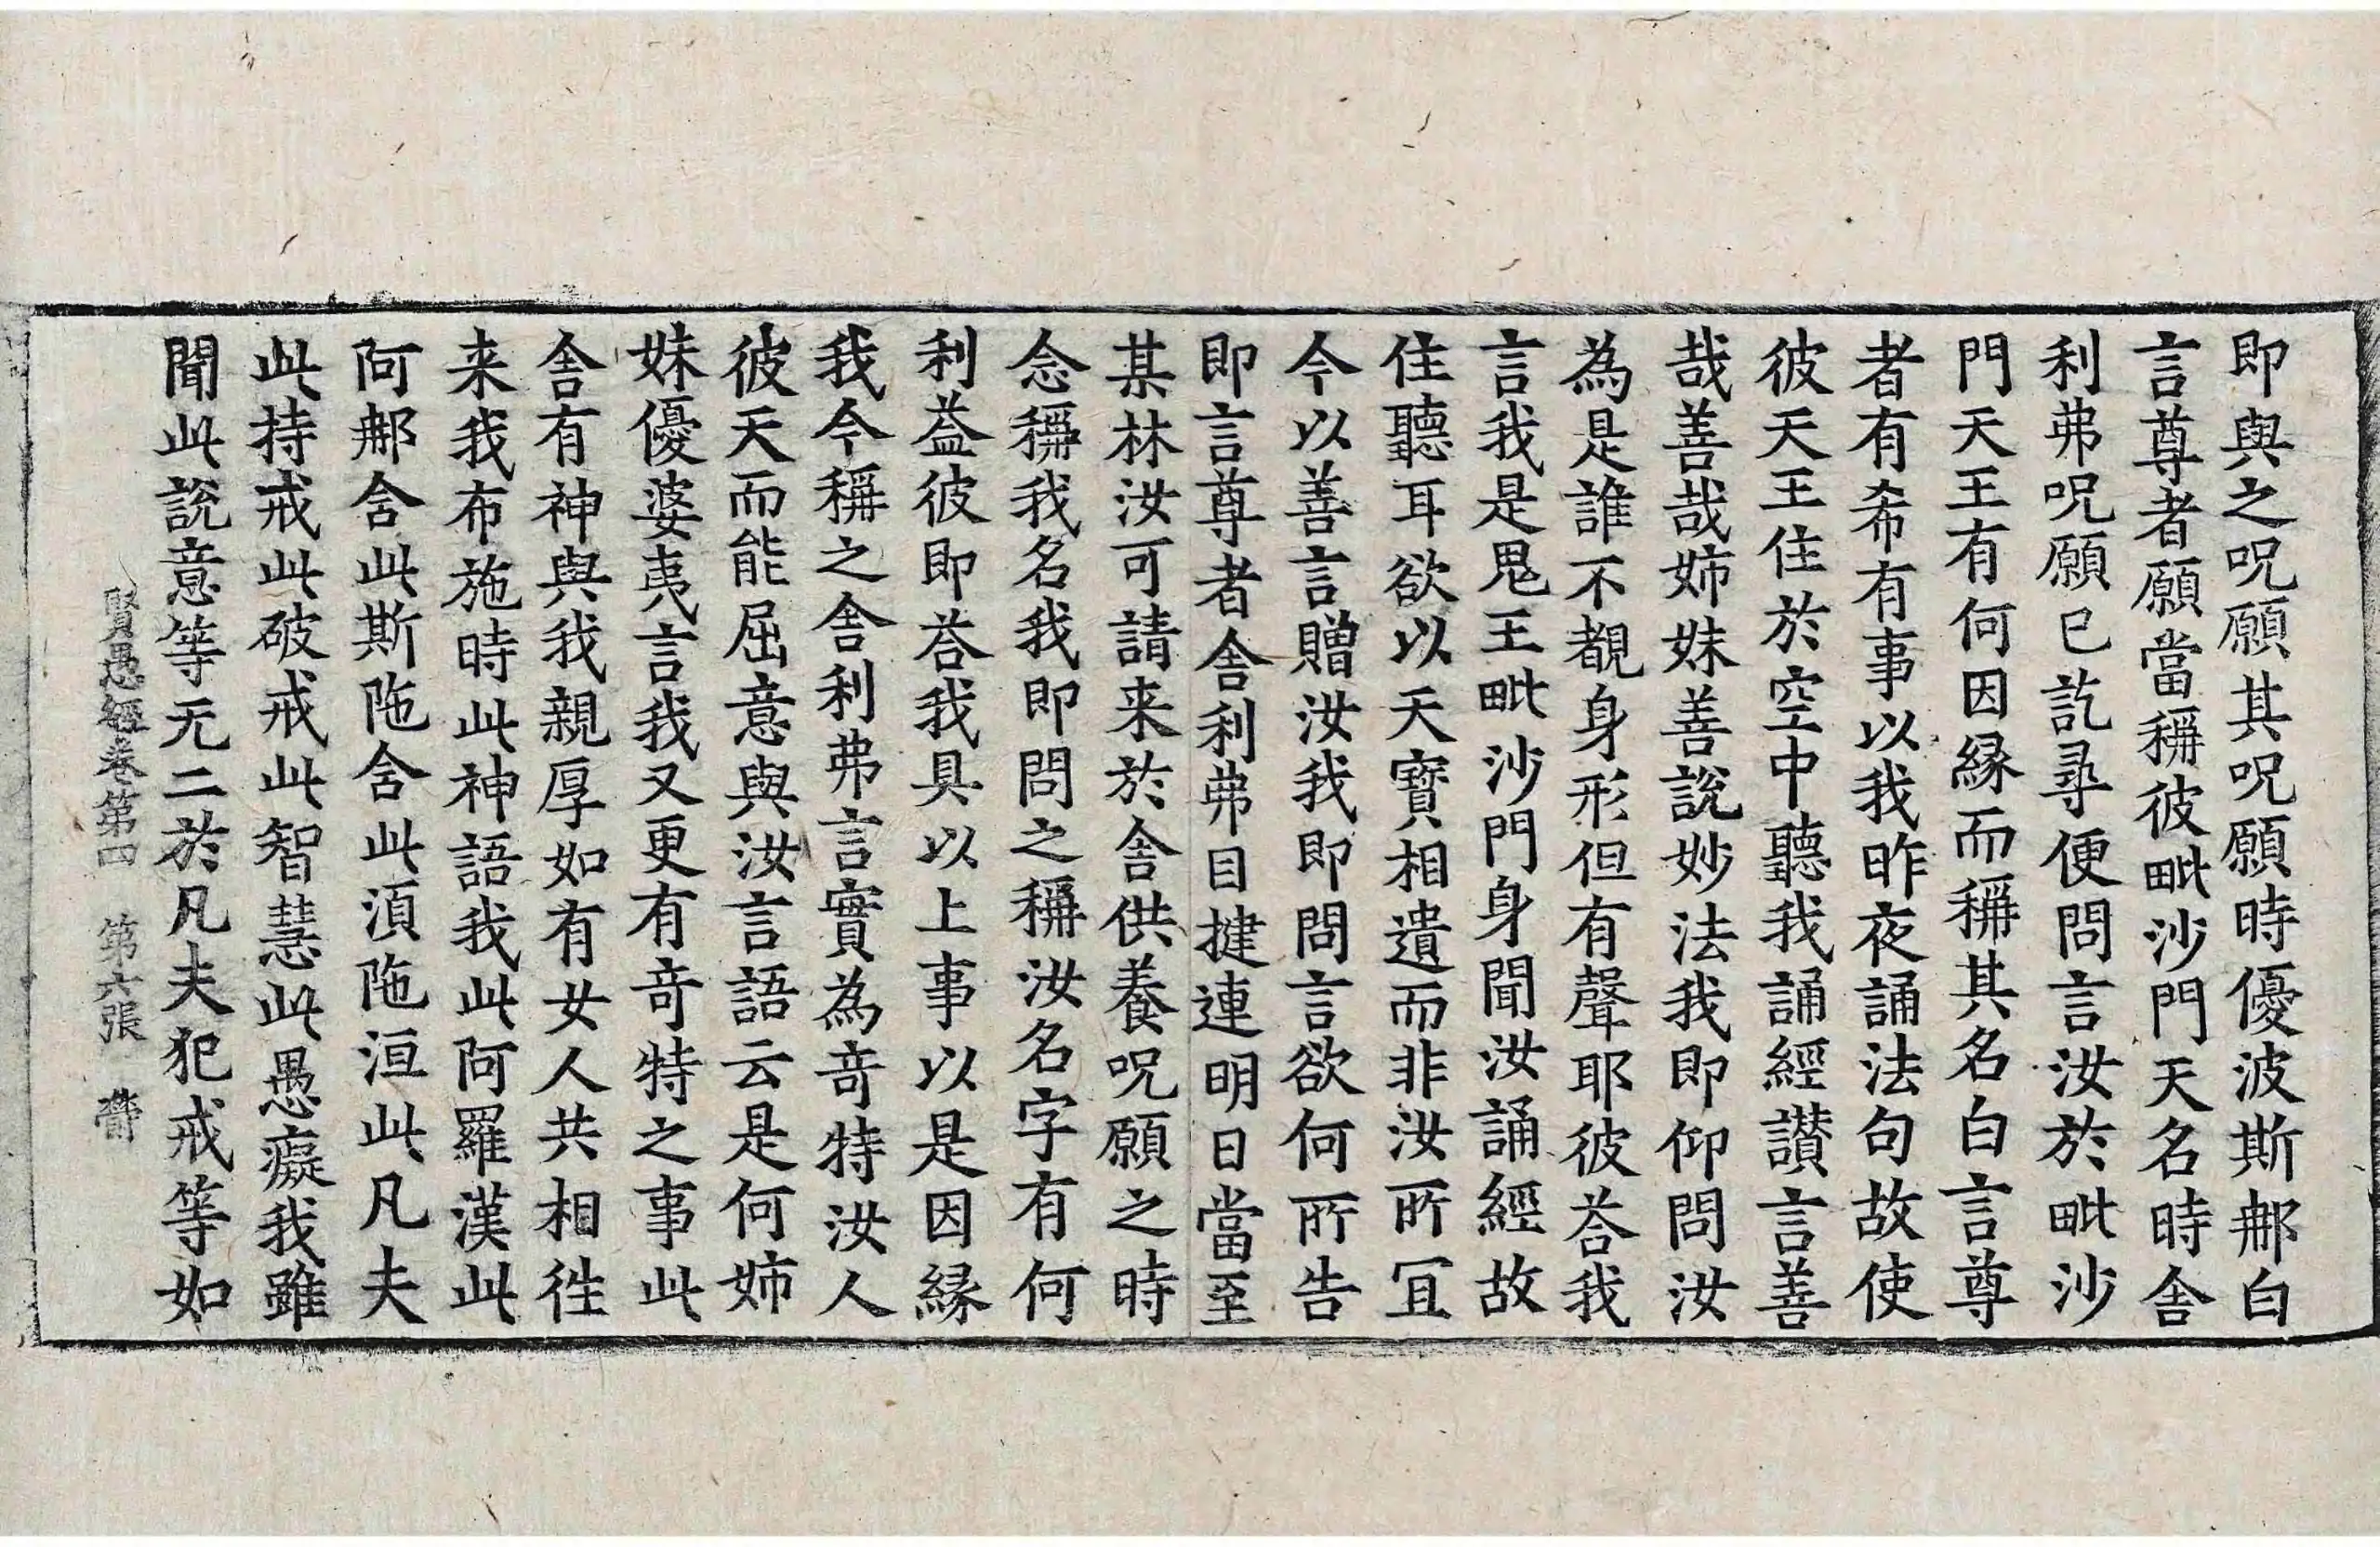 即與之呪願其呪願時優波斯𨙻白
言尊者願當稱彼毗沙門天名時舍
利弗呪願已訖尋便問言汝於毗沙
門天王有何因緣而稱其名白言尊
者有希有事以我昨夜誦法句故使
彼天王住於空中聽我誦經讃言善
哉善哉姉妹善說妙法我即仰問汝
為是誰不覩身形但有聲耶彼荅我
言我是鬼王毗沙門身聞汝誦經故
住聽耳欲以天寶相遺而非汝所冝
今以善言贈汝我即問言欲何所告
即言尊者舍利弗目揵連明日當至
某林汝可請来於舍供養呪願之時
念稱我名我即問之稱汝名字有何
利益彼即荅我具以上事以是因緣
我今稱之舍利弗言實為竒特汝人
彼天而能屈意與汝言語云是何姉
妹優婆夷言我又更有竒特之事此
舍有神與我親厚如有女人共相徃
来我布施時此神語我此阿羅漢此
阿𨙻含此斯陁含此湏陁洹此凡夫
此持戒此破戒此智慧此愚癡我雖
聞此說意等无二於凡夫犯戒等如
賢愚經卷第四　第六張